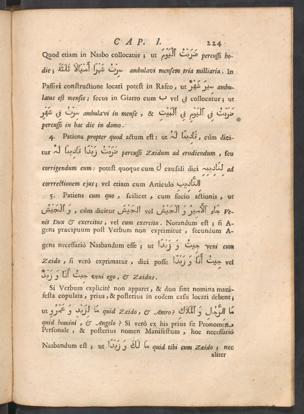 CAP. I. 224
Quod etiam in Nasbo collocatur; ut ضَرَبْتُ اَلْيَوْمَ percussi ho-
die; سِرْتُ شَهْرًا أَمْيَالًا ثَلَثَةً ambulavi mensem tria milliaria. In
Passivi constructione locari potest in Rafeo, ut سِيرَ شَهْرٌ ambu-
latus est mensis; secus in Giarro cum ب vel فِي collocatur; ut
سِرْتُ فِي شَهْرٍ ambulavi in mense, & ضَرَبْتُ فِي اَلْيَوْمِ فِي اَلْبَيْتِ
percussi in hac die in domo.
4. Patiens propter quod actum est: ut تَأْدِيبًا لَهُ, cùm dici-
tur ضَرَبْتُ زَيْدًا تَأْدِيبًا لَهُ percussi Zaidum ad erudiendum, seu
corrigendum eum: potest quoque cum لِ causali dici لِتَأْدِيبِهِ ad
correctionem ejus; vel etiam cum Articulo اَلتَّأْدِيبِ
5. Patiens cum quo, scilicet, cum socio actionis, ut
وَ اَلْجَيْشَ, cùm dicitur جَاءَ اَلْأَمِيرُ وَ اَلْجَيْشَ vel وَ اَلْجَيْشُ Ve-
nit Dux & exercitus, vel cum exercitu. Notandum est; si A-
gens praecipuum post Verbum non exprimitur, secundum A-
gens necessariò Nasbandum esse; ut جِيتُ وَ زَيْدًا veni cum
Zaido, si verò exprimatur, dici posse جِيتُ أَنَا وَ زَيْدًا vel
جِيتُ أَنَا وَ زَيْدٌ veni ego, & Zaidus.
Si Verbum explicitè non apparet, & duo sint nomina mani-
festa copulata, prius, & posterius in eodem casu locari debent;
ut مَا لِزَيْدٍ وَ عَمْرٍو quid Zaido, & Amro? مَا لِلرِّجَالِ وَ اَلْمَلَاكِ
quid homini, & Angelo? Si verò ex his prius sit Pronomen
Personale, & posterius nomen Manifestum, hoc necessariò
Nasbandum est; ut مَا لَكَ وَ زَيْدًا quid tibi cum Zaido; nec
aliter